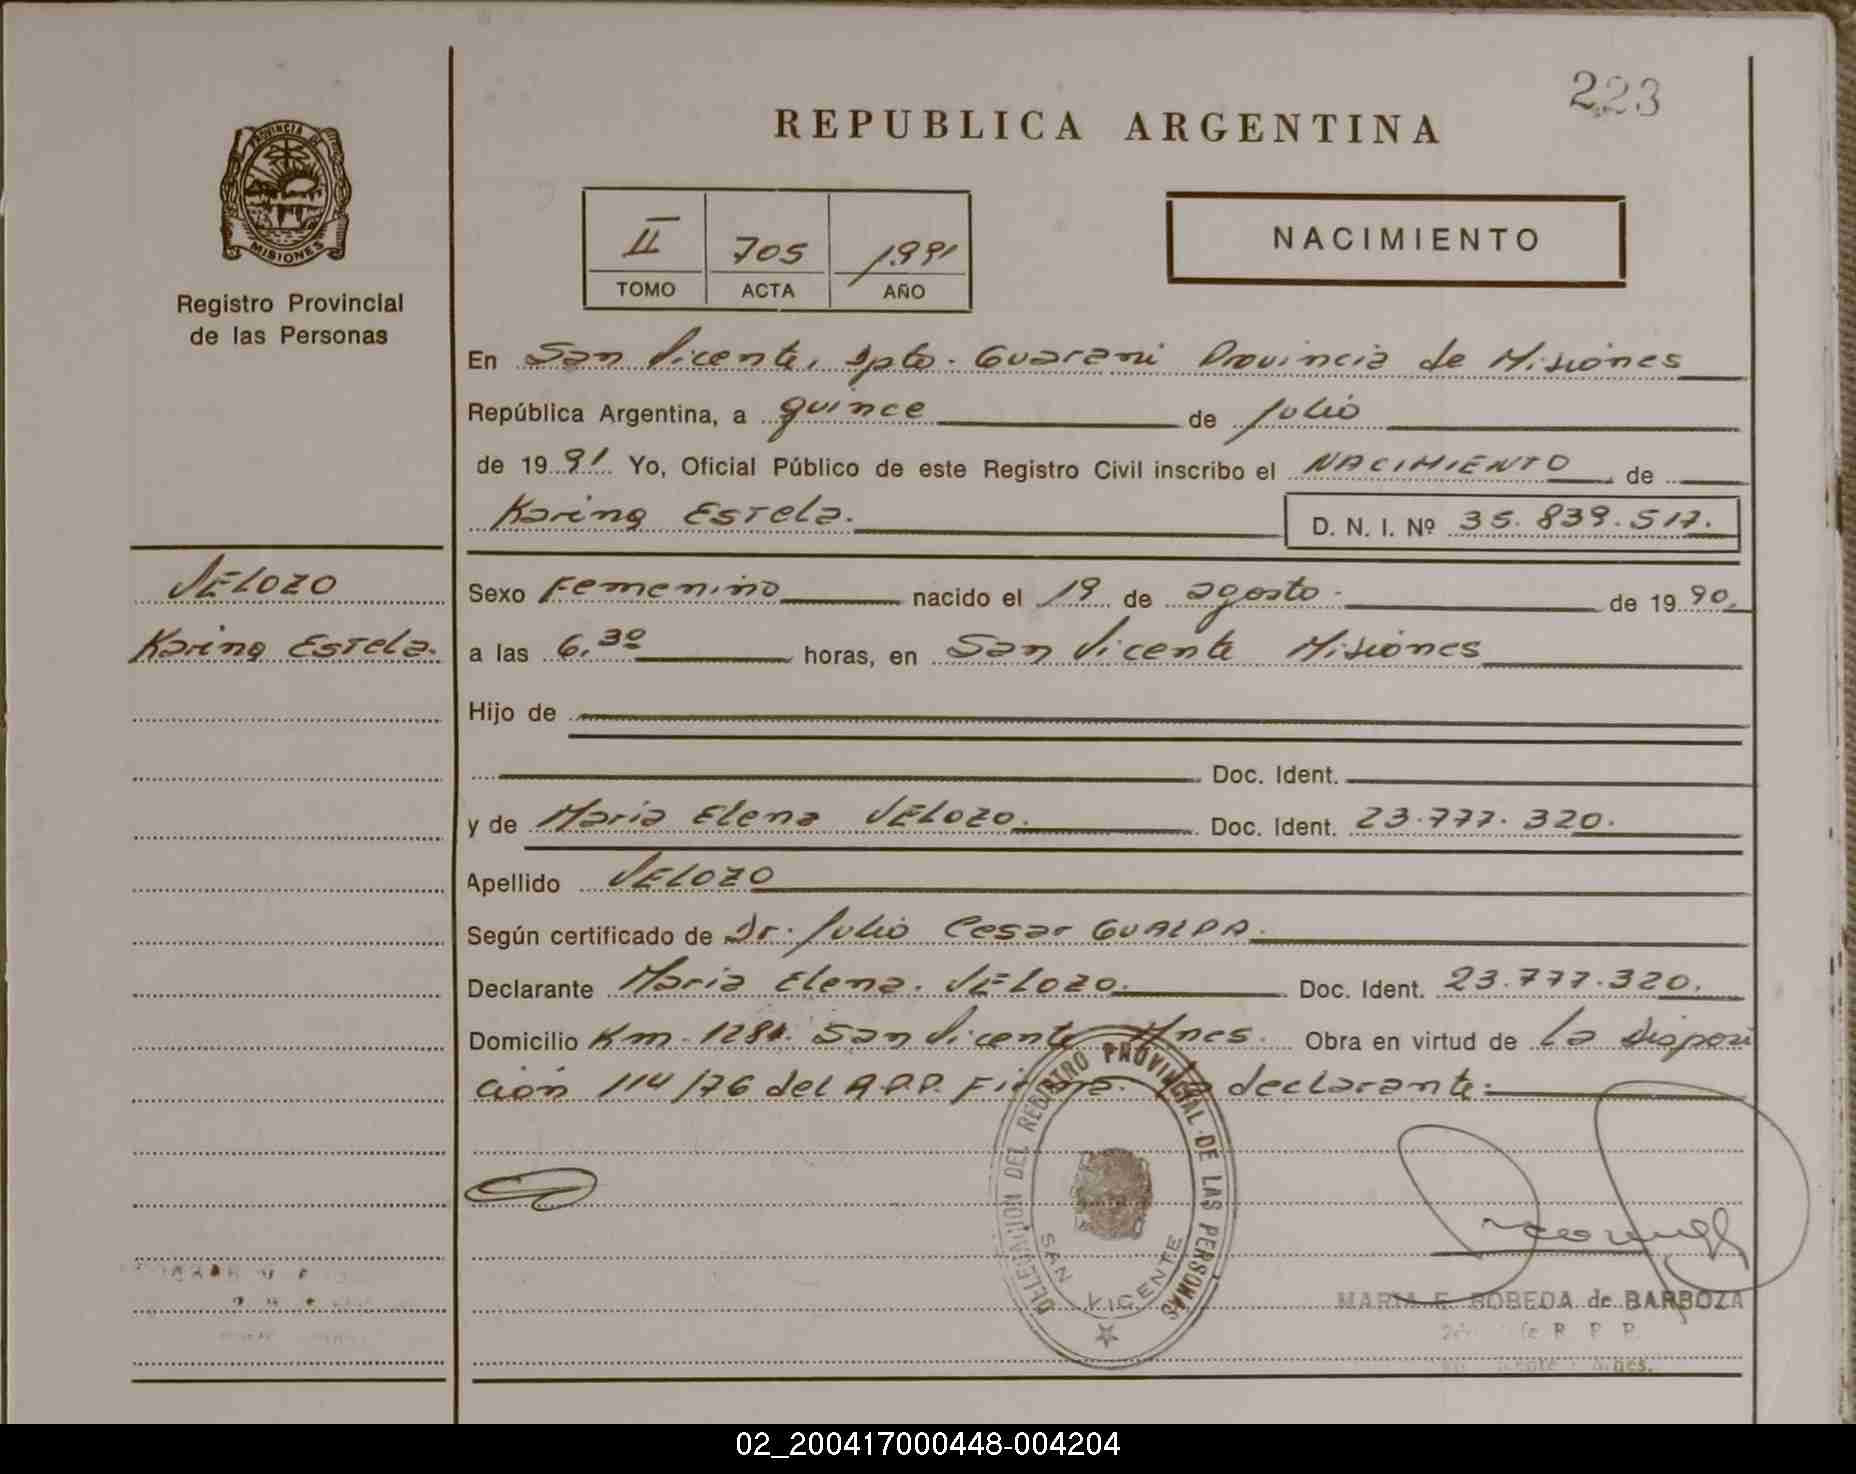 223
REPUBLICA ARGENTINA
PROVINCIA DE
MISIONES
Registro Provincial
de las Personas
II 705 1.991
TOMO ACTA AÑO
NACIMIENTO
En San Vicente, Dpto. Guarani Provincia de Misiones
República Argentina, a quince de Julio
de 1991 Yo, Oficial Público de este Registro Civil inscribo el NACIMIENTO de
Karina Estela. D. N. I. Nº 35.839.517.
VELOZO
Karina Estela.
Sexo Femenino nacido el 19 de agosto. de 1990.
a las 6,30 horas, en San Vicente Misiones
Hijo de
Doc. Ident.
y de Maria Elena VELOZO. Doc. Ident. 23.777.320.
Apellido VELOZO
Según certificado de Dr. Julio Cesar GUALDA.
Declarante Maria Elena. VELOZO. Doc. Ident. 23.777.320.
Domicilio Km. 1281. San Vicente Mnes. Obra en virtud de La Disposi
ción 114/76 del R.P.P. Firma. La declarante.
DELEGACION DEL REGISTRO PROVINCIAL DE LAS PERSONAS
SAN VICENTE
MARIA E. BOBEDA de BARBOZA
R. P. P.
Mnes.
02_200417000448-004204